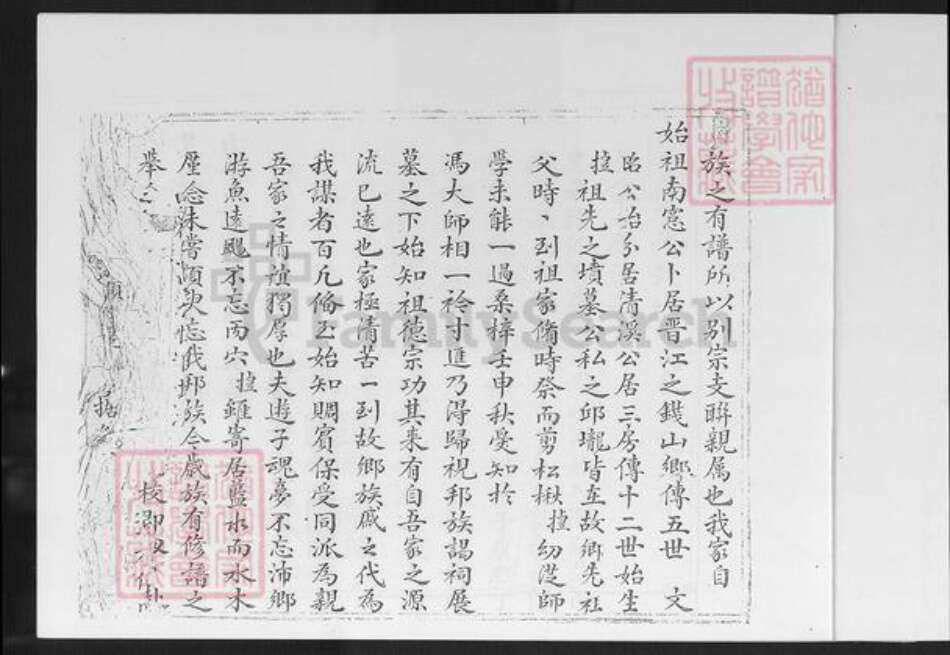 族之有譜所以别宗支聨親属也我家自
始祖南憲公卜居晋江之鐵山鄉傳五世 文
公始分居清溪公居三房傳十二世始生
祖先之墳墓公私之邱壠皆在故鄉先社
父時丶到祖家脩時祭而剪松楸 幼從師
學未能一過桑梓壬申秋受知於
馮大師相一衿寸進乃淂歸視邦族謁祠展
墓之下始知祖德宗功其来有自吾家之源
流已遠也家極清苦一到故鄉族戚之代為
我謀者百凡俻至始知賙賓保受同派為親
吾家之情誼獨厚也夫遊子魂夢不忘沛鄉
游魚遠颺不忘丙穴 雖寄居藍水而水木
念未嘗頃㡬忘哉邦族今歲族有修譜之
舉
FamilySearch